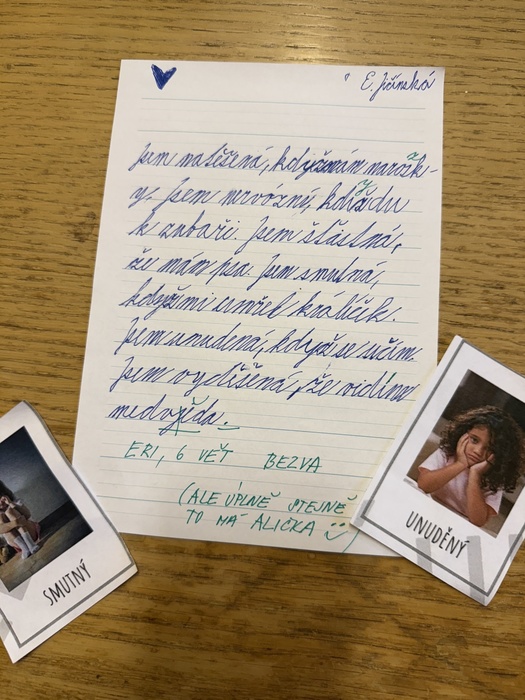 E. Jičínská
Jsem natěšená, když mám narozk-
y. Jsem nrvózní, když du
k zubaři. Jsem šťastná,
že mám psa. Jsem smutná,
když mi umřel králíček.
Jsem unudená, když se učím.
Jsem vyděšená, že vidím
medvěda.
ERI, 6 VĚT BEZVA
(ALE ÚPLNĚ STEJNĚ
TO MÁ ALIČKA
SMUTNÝ
UNUDĚNÝ